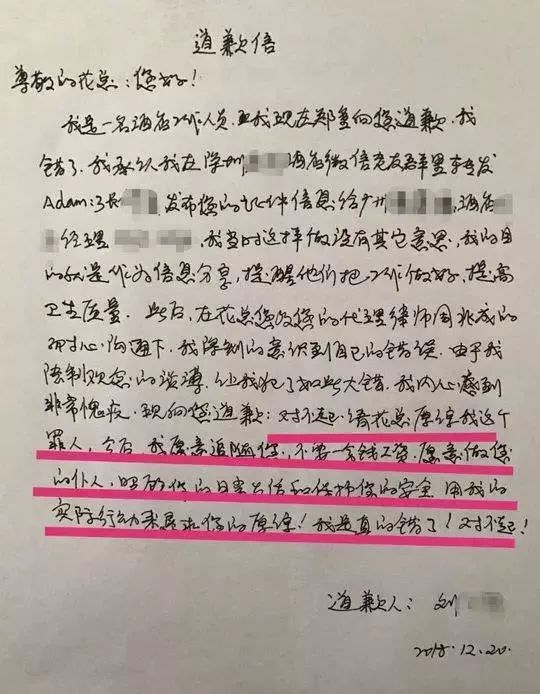 道歉信
尊敬的花总：您好！
我是一名酒店工作人员，且我现在郑重向您道歉，我
错了。我承认我在深圳 酒店微信老友群里转发
Adam:3长 发布您的证件信息给广州 ，酒店
经理 。我当时这样做没有其它意思，我的目
的就是作为信息分享，提醒他们把工作做好，提高
卫生质量。此后，在花总您及您的代理律师周兆成的
耐心沟通下，我深刻的意识到自己的错误。由于我
法制观念的淡薄，让我犯了如此大错。我内心感到
非常愧疚。现向您道歉：对不起！请花总原谅我这个
罪人，今后 我愿意追随您，不要一分钱工资，愿意做您
的仆人，照顾您的日常生活和保护您的安全，用我的
实际行动来层 你的原谅！我是真的错了！对不起！
道歉人： 刘
2018.12.20.